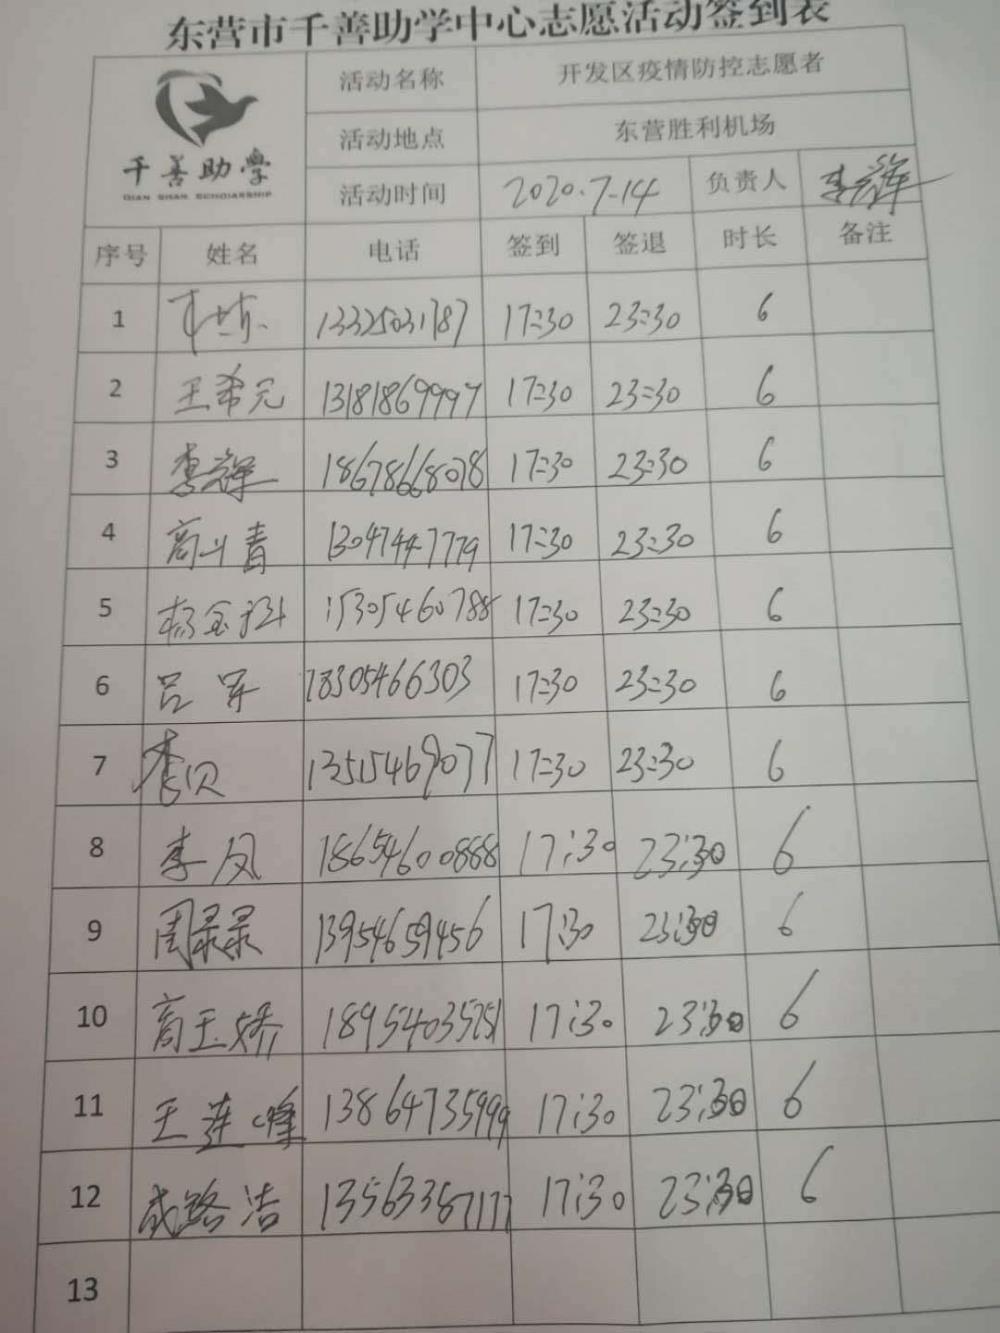 东营市千善助学中心志愿活动签到表
千善助学
QIAN SHAN SCHOLARSHIP
活动名称 开发区疫情防控志愿者
活动地点 东营胜利机场
活动时间 2020.7.14 负责人 李辉
序号 姓名 电话 签到 签退 时长 备注
1 13325031787 17:30 23:30 6
2 王希元 13181869997 17:30 23:30 6
3 李辉 18678668078 17:30 23:30 6
4 商斗青 13047447779 17:30 23:30 6
5 杨金 15305460788 17:30 23:30 6
6 吕军 18305466303 17:30 23:30 6
7 李贝 13515469077 17:30 23:30 6
8 李凤 18654600888 17:30 23:30 6
9 周录录 13954659456 17:30 23:30 6
10 商玉娇 18954035751 17:30 23:30 6
11 王连峰 13864735999 17:30 23:30 6
12 成路洁 13563387177 17:30 23:30 6
13